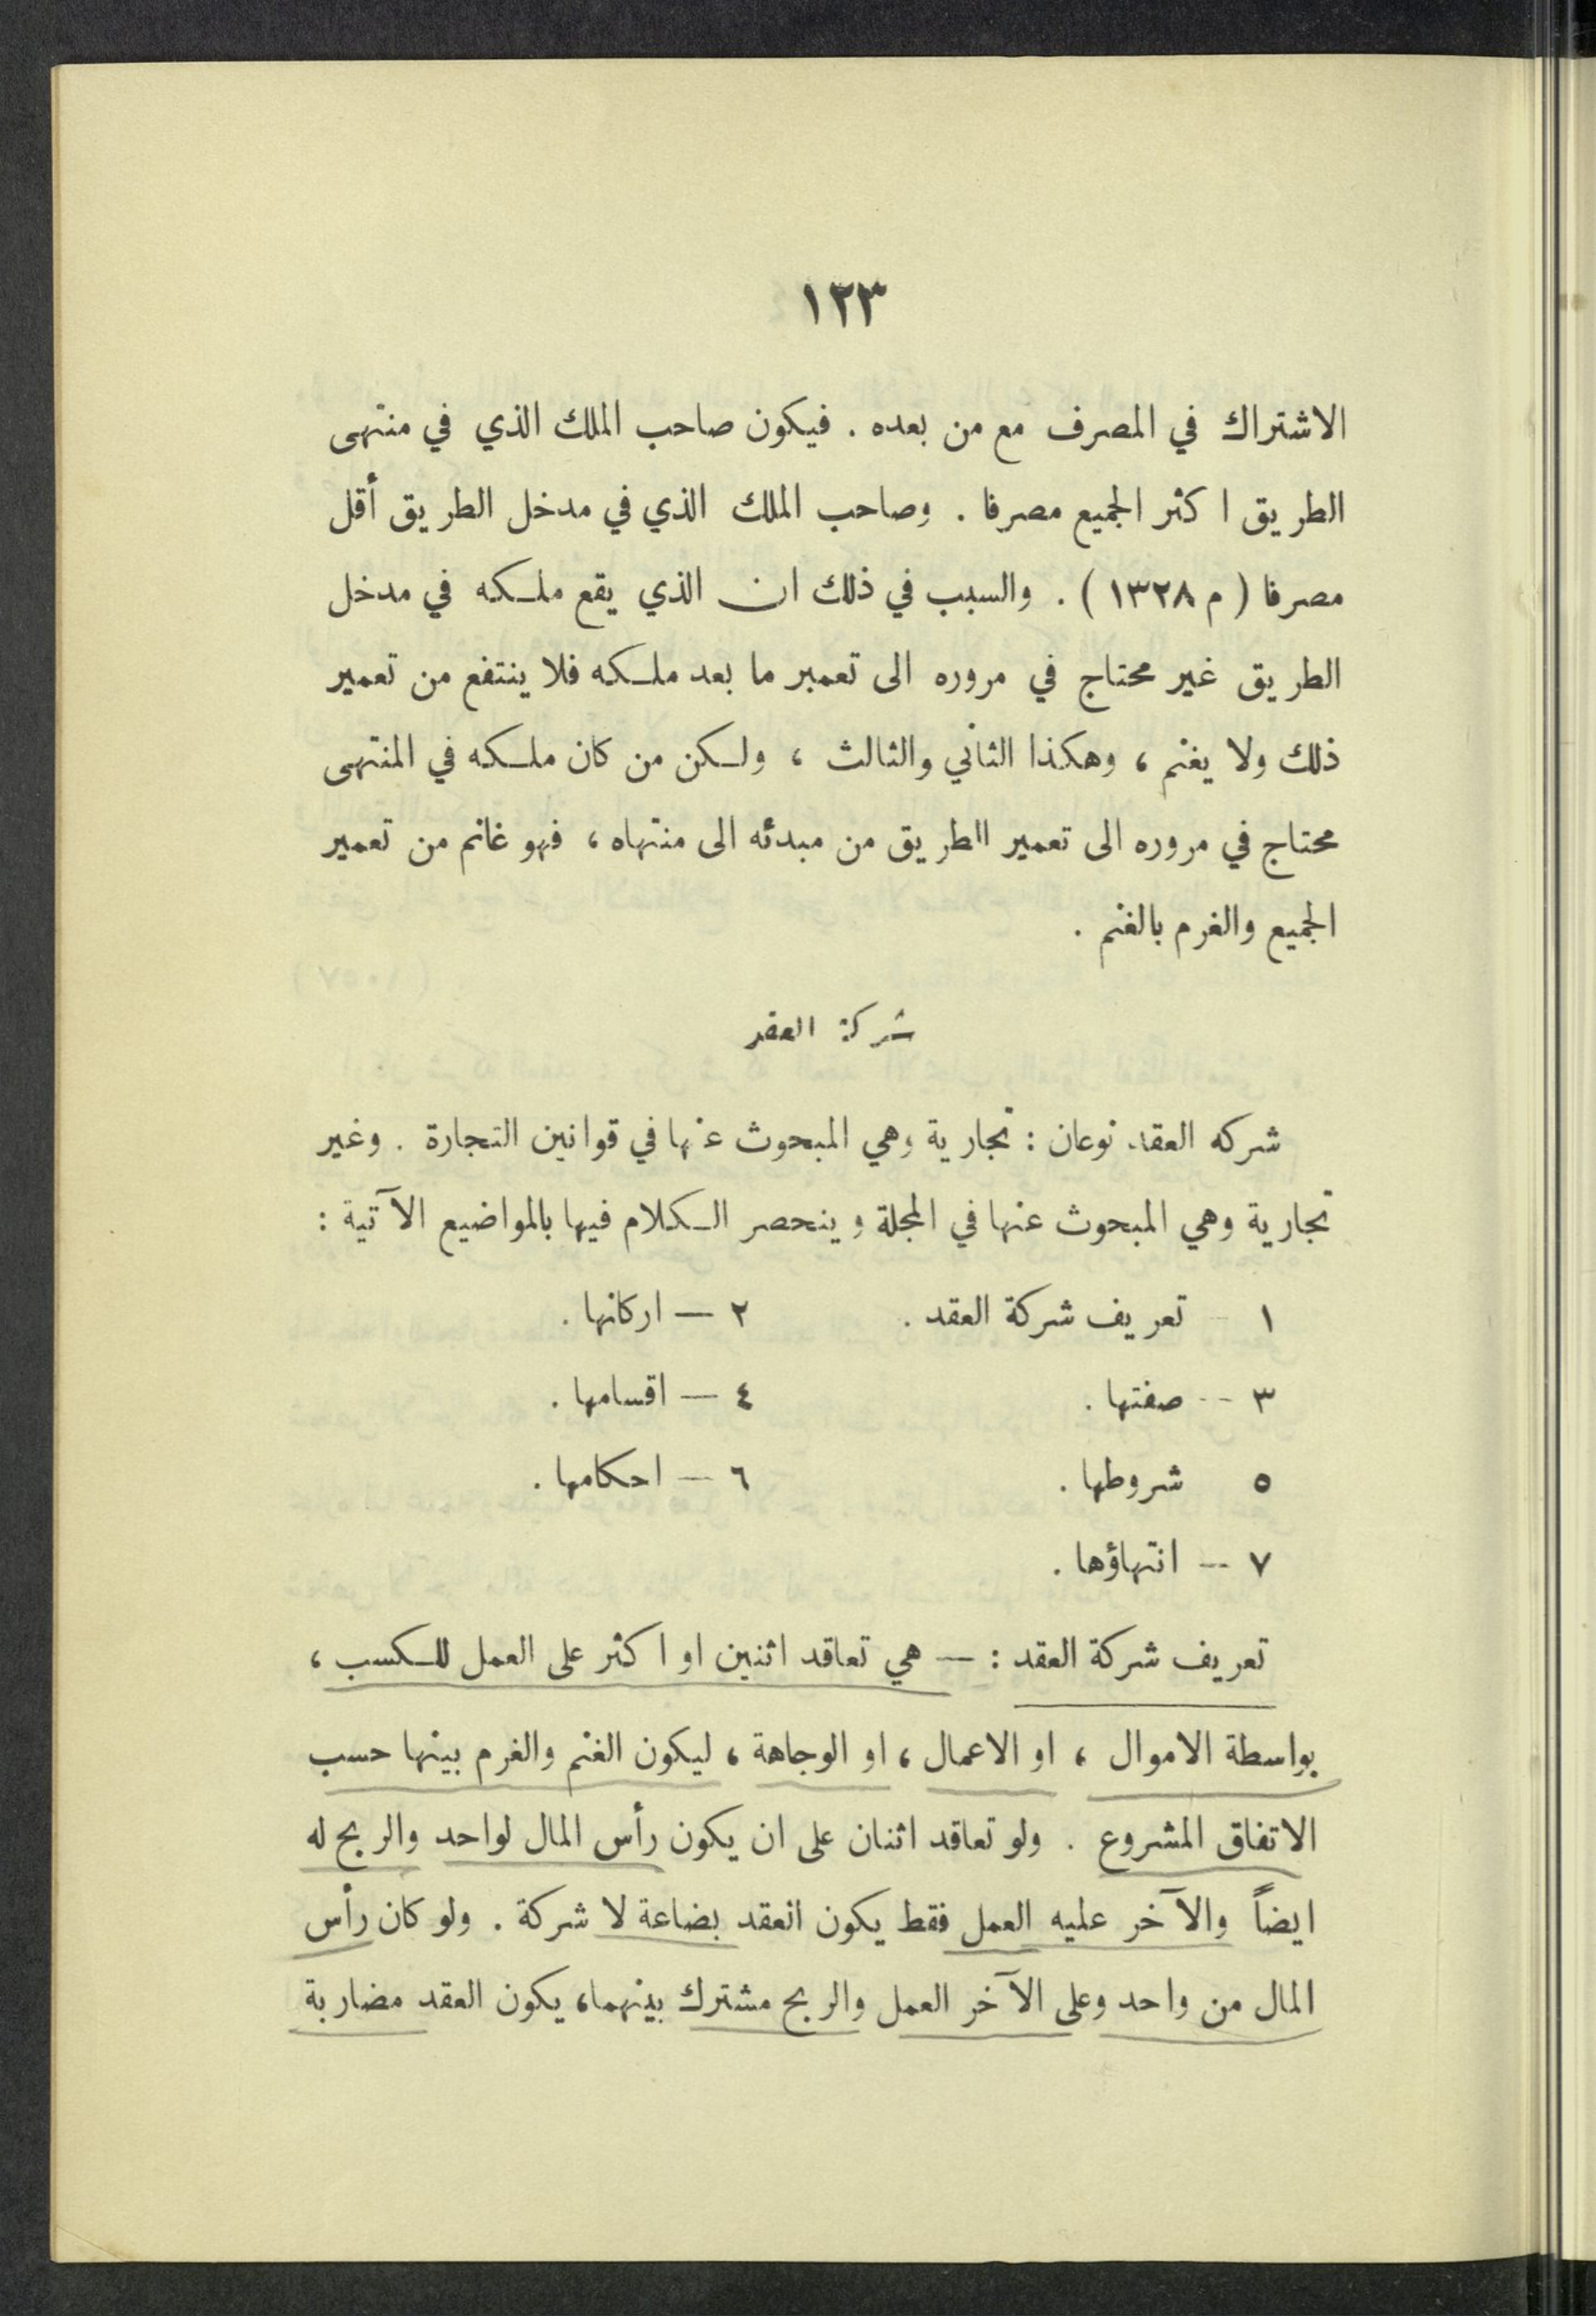 ١٢٣
الاشتراك في المصرف مع من بعده . فيكون صاحب الملك الذي في منتهى
الطريق اكثر الجميع مصرفا . وصاحب الملك الذي في مدخل الطريق أقل
مصرفا ( م ١٣٢٨ ) . والسبب في ذلك ان الذي يقع ملكه في مدخل
الطريق غير محتاج في مروره الى تعمير ما بعد ملكه فلا ينتفع من تعمير
ذلك ولا يغنم ، وهكذا الثاني والثالث ، ولكن من كان ملكه في المنتهى
محتاج في مروره الى تعمير الطريق من مبدئه الى منتهاه ، فهو غانم من تعمير
الجميع والغرم بالغنم .
شركة العقد
شركه العقد نوعان : تجارية وهي المبحوث عنها في قوانين التجارة . وغير
تجارية وهي المبحوث عنها في المجلة وينحصر الكلام فيها بالمواضيع الآتية :
١ — تعريف شركة العقد . ٢ — اركانها .
٣ — صفتها . ٤ — اقسامها .
٥ شروطها . ٦ — احكامها .
٧ — انتهاؤها .
تعريف شركة العقد : — هي تعاقد اثنين او اكثر على العمل للكسب ،
بواسطة الاموال ، او الاعمال ، او الوجاهة ، ليكون الغنم والغرم بينها حسب
الاتفاق المشروع . ولو تعاقد اثنان على ان يكون رأس المال لواحد والربح له
ايضاً والآخر عليه العمل فقط يكون العقد بضاعة لا شركة . ولو كان رأس
المال من واحد وعلى الآخر العمل والربح مشترك بينهما، يكون العقد مضاربة